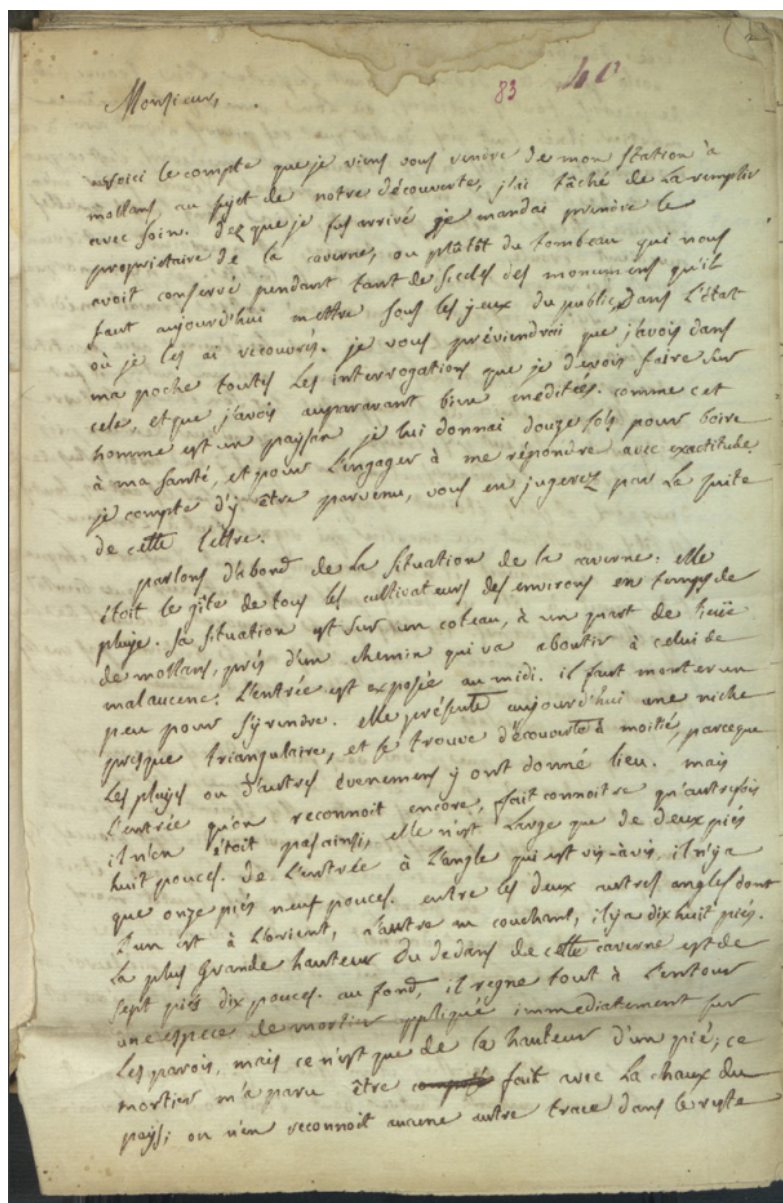 83 40
Monsieur,
voici le compte que je viens vous rendre de mon station à
mollans au sujet de notre découverte, j'ai tâché de la remplir
avec soin. dez que je fus arrivé je mandai prendre le
propriétaire de la caverne, ou plûtôt du tombeau qui nous
avoit conservé pendant tant de siecles des monumens qu'il
faut aujourd'hui mettre sous les yeux du public, dans l'état
où je les ai recouvrés. je vous préviendrai que j'avois dans
ma poche toutes les interrogations que je devois faire sur
cela, et que j'avois auparavant bien meditées. comme cet
homme est un paysan je lui donnai douze sols pour boire
à ma santé, et pour l'engager à me répondre avec exactitude.
je compte d'y être parvenu, vous en jugerez par la suite
de cette lettre.
parlons d'abord de la situation de la caverne. elle
étoit le gîte de tous les cultivateurs des environs en temps de
pluye. sa situation est sur un coteau, à un quart de lieüe
de mollans, près d'un chemin qui va aboutir à celui de
malaucene. L'entrée est exposée au midi. il faut monter un
peu pour s'y rendre. elle présente aujourd'hui une niche
presque triangulaire, et se trouve découverte à moitié, parceque
les pluyes ou d'autres évenemens y ont donné lieu. mais
l'entrée qu'on reconnoit encore, fait connoitre qu'autrefois
il n'en étoit pas ainsi, elle n'est large que de deux piés
huit pouces. de l'entrée à l'angle qui est vis-à-vis, il n'y a
que onze piés neuf pouces. entre les deux autres angles dont
l'un est à l'orient, l'autre au couchant, il y a dix huit piés.
la plus grande hauteur du dedans de cette caverne est de
sept piés dix pouces. au fond, il regne tout à l'entour
une espece de mortier appliqué immediatement sur
les parois, mais ce n'est que de la hauteur d'un pié; ce
mortier m'a paru être fait avec la chaux du
pays; on n'en reconnoit aucune autre trace dans le reste